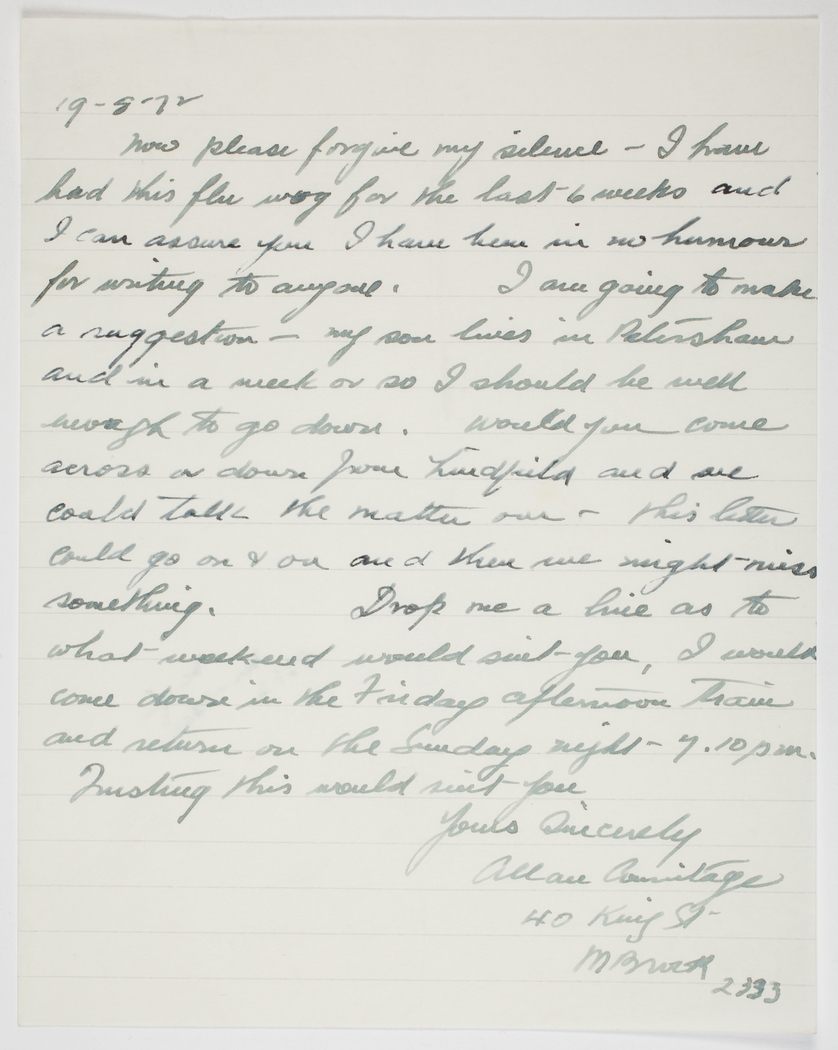 19-8-72
Now please forgive my silence - I have
had this flu wog for the last 6 weeks and
I can assure you I have been in no humour
for writing to anyone. I am going to make
a suggestion - my son lives in Petersham
and in a week or so I should be well
enough to go down. Would you come
across or down from Lindfield and we
could talk the matter over - this letter
could go on & on and then we might miss
something. Drop me a line as to
what weekend would suit you, I would
come down in the Friday afternoon train
and return on the Sunday night - 7.10 pm.
Trusting this would suit you
Yours Sincerely
Allan Armitage
40 King St
M Brook
2333